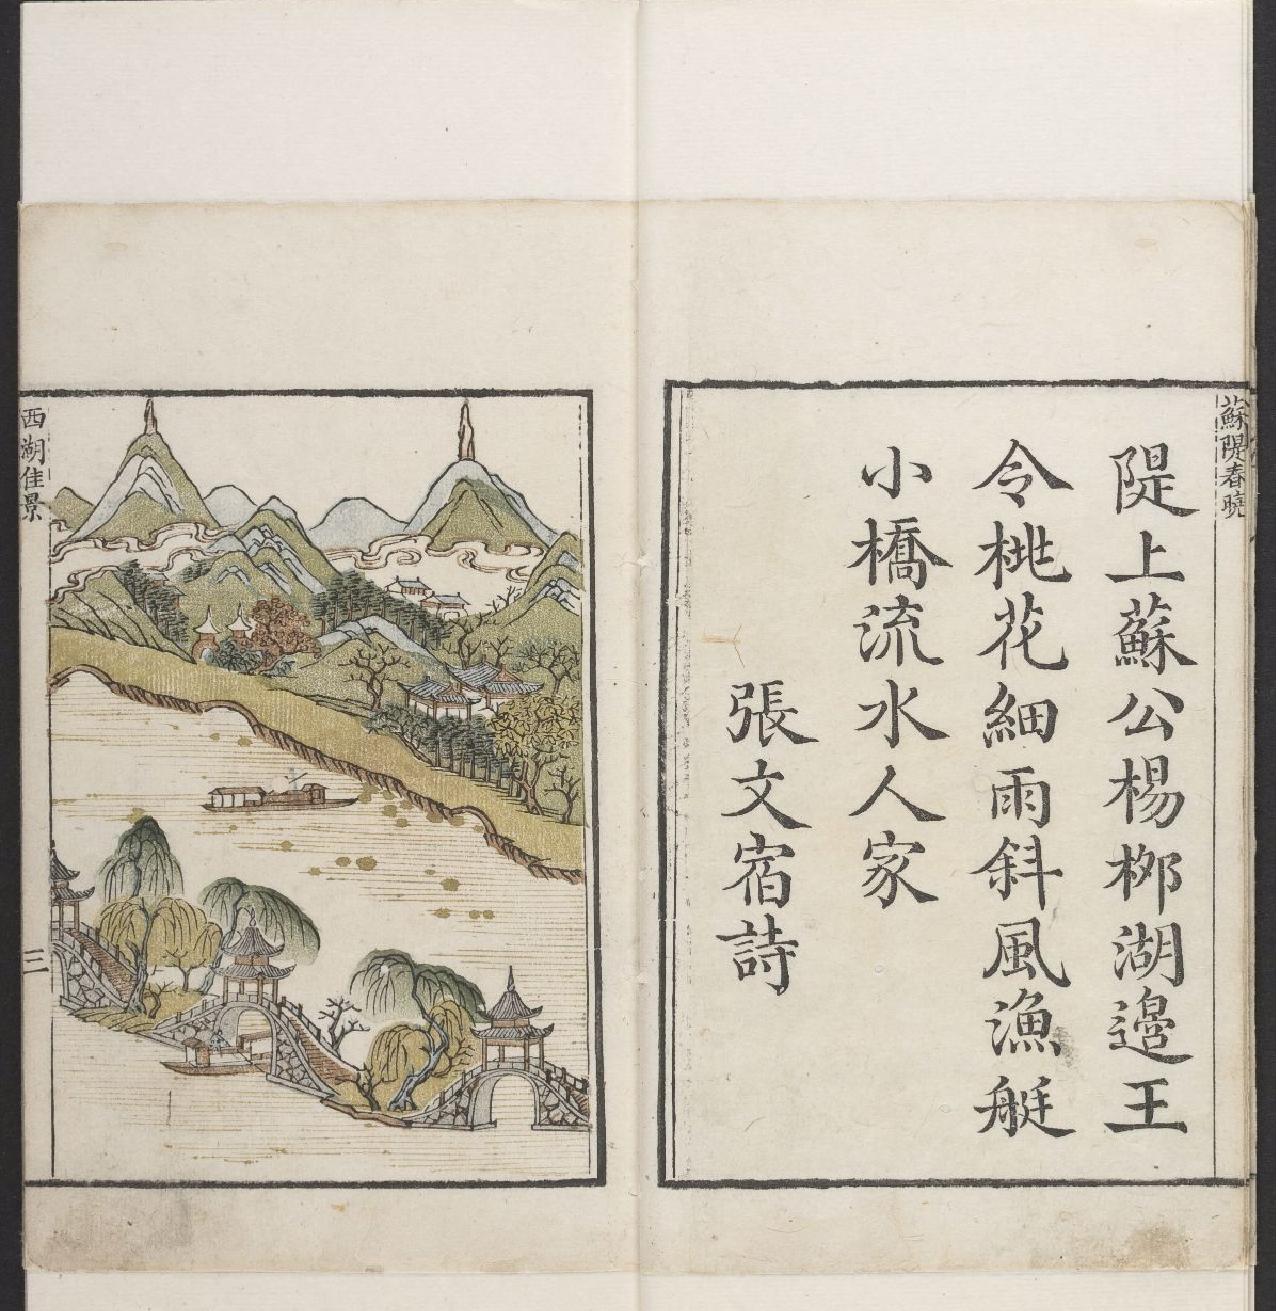 蘇隄春曉
隄上蘇公楊栁湖邉王
令桃花細雨斜風漁艇
小橋流水人家
張文宿詩
西湖佳景
三